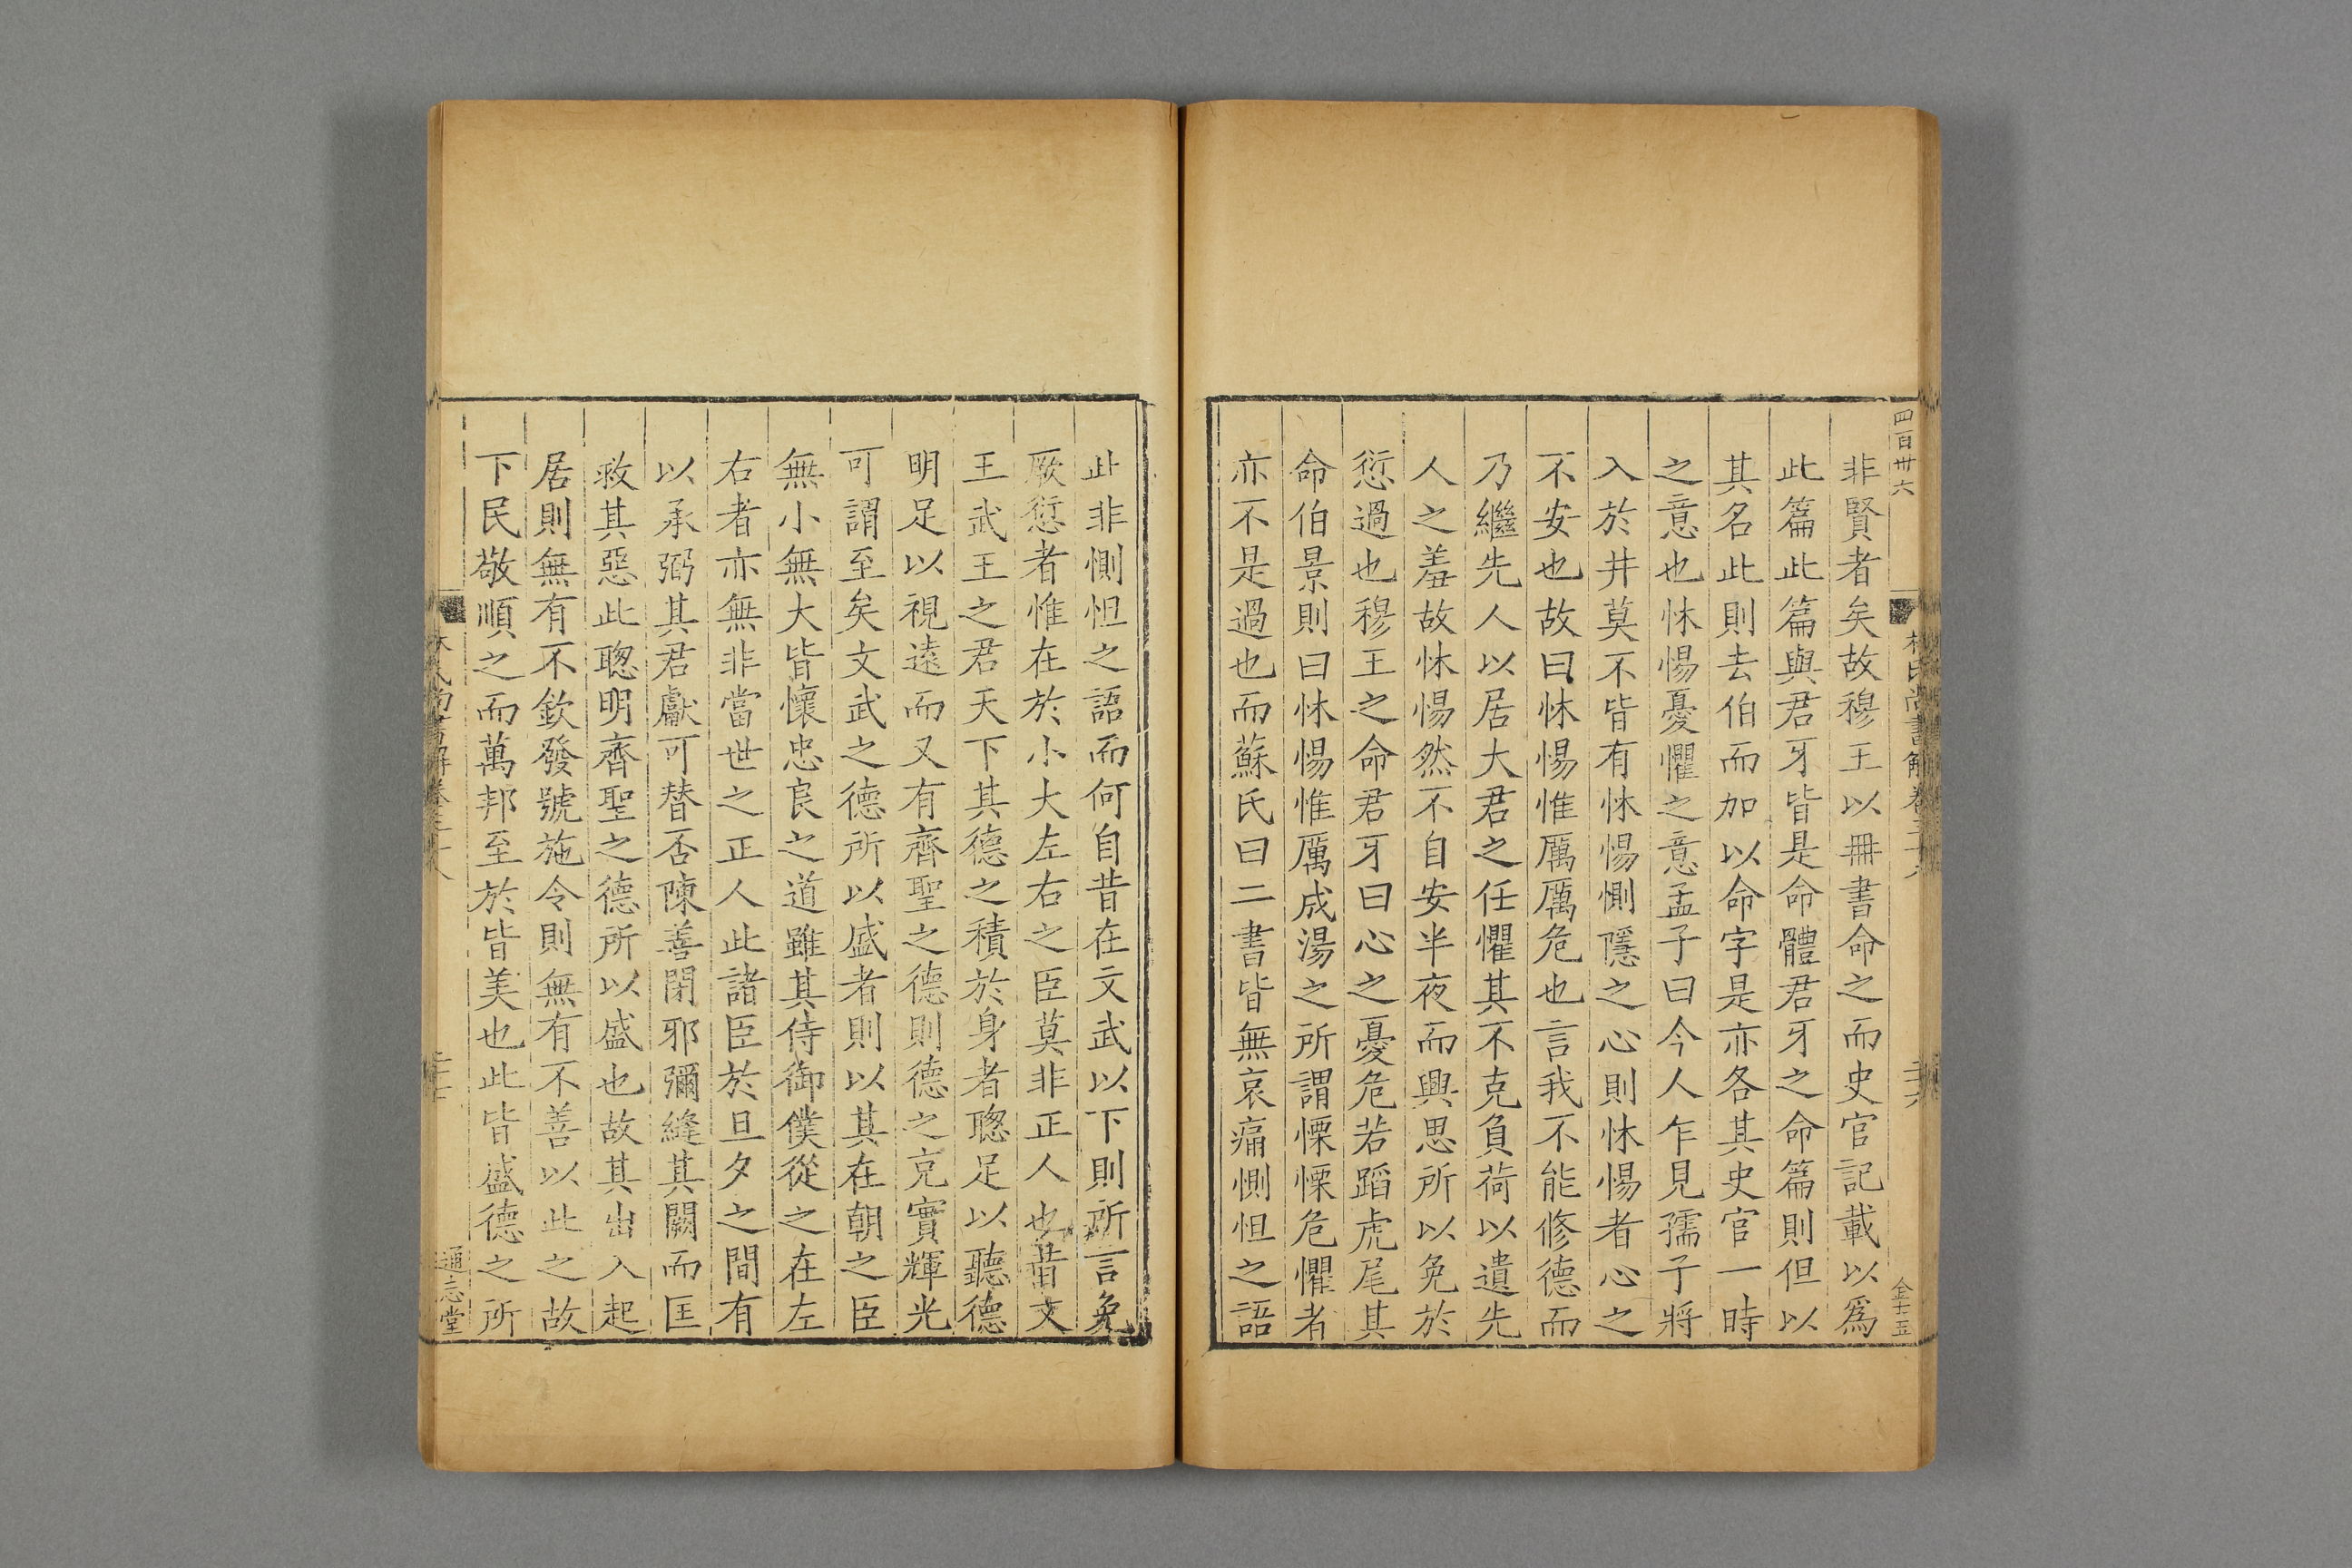 四百卅六
非賢者矣故穆王以冊書命之而史官記載以爲
此篇此篇與君牙皆是命體君牙之命篇則但以
其名此則去伯而加以命字是亦各其史官一時
之意也怵惕憂懼之意孟子曰今人乍見孺子將
入於井莫不皆有怵惕惻隱之心則怵惕者心之
不安也故曰怵惕惟厲厲危也言我不能修德而
乃繼先人以居大君之任懼其不克負荷以遺先
人之羞故怵惕然不自安半夜而興思所以免於
愆過也穆王之命君牙曰心之憂危若蹈虎尾其
命伯冏則曰怵惕惟厲成湯之所謂慄慄危懼者
亦不是過也而蘇氏曰二書皆無哀痛惻怛之語
此非惻怛之語而何自昔在文武以下則所言免
厥愆者惟在於小大左右之臣莫非正人也昔文
王武王之君天下其德之積於身者聦足以聽德
明足以視遠而又有齊聖之德則德之充實輝光
可謂至矣文武之德所以盛者則以其在朝之臣
無小無大皆懷忠良之道雖其侍御僕從之在左
右者亦無非當世之正人此諸臣於旦夕之間有
以承弼其君獻可替否陳善閉邪彌縫其闕而匡
救其惡此聦明齊聖之德所以盛也故其出入起
居則無有不欽發號施令則無有不善以此之故
下民敬順之而萬邦至於皆美也此皆盛德之所
通志堂